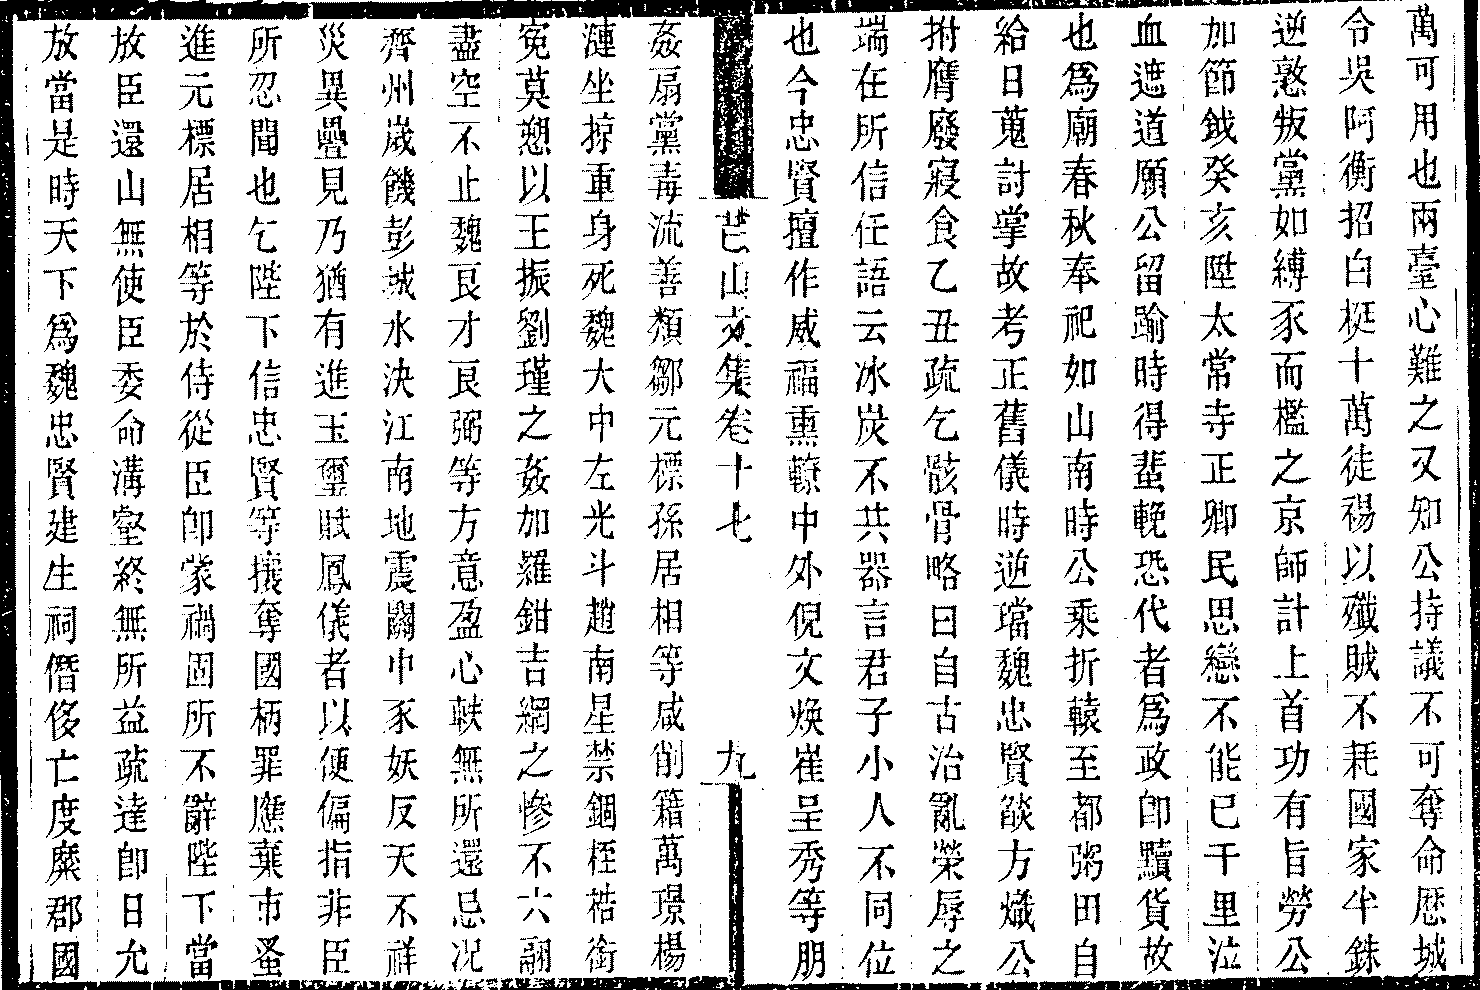 萬可用也兩臺心難之又知公持議不可奪命歴城
令吳阿衡招白梃十萬徒裼以殲賊不耗國家半銖
逆憝叛黨如縛豕而檻之京師計上首功有旨勞公
加節鉞癸亥陞太常寺正卿民思戀不能已千里泣
血遮道願公留踰時得蜚輓恐代者為政卽黷貨故
也爲廟春秋奉祀如山南時公乘折轅至都粥田自
給日蒐討掌故考正舊儀時逆璫魏忠賢燄方熾公
拊膺廢寢食乙丑疏乞骸骨略曰自古治亂榮辱之
端在所信任語云冰炭不共器言君子小人不同位
也今忠賢擅作威福熏轑中外倪文煥崔呈秀等朋
芑山文集卷十七 九
姦扇黨毒流善類鄒元標孫居相等咸削籍萬璟楊
漣坐掠重身死魏大中左光斗趙南星禁錮桎梏銜
寃莫愬以王振劉瑾之姦加羅鉗吉網之慘不六翮
盡空不止魏良才良弼等方意盈心軼無所還忌况
齊州歲饑彭城水決江南地震闢中豕妖反天不祥
災異疊見乃猶有進玉璽賦鳳儀者以便偏指非臣
所忍聞也乞陛下信忠賢等攘奪國柄罪應棄市蚤
進元標居相等於侍從臣卽蒙禍固所不辭陛下當
放臣還山無使臣委命溝壑終無所益疏達卽日允
放當是時天下爲魏忠賢建生祠僭侈亡度糜郡國